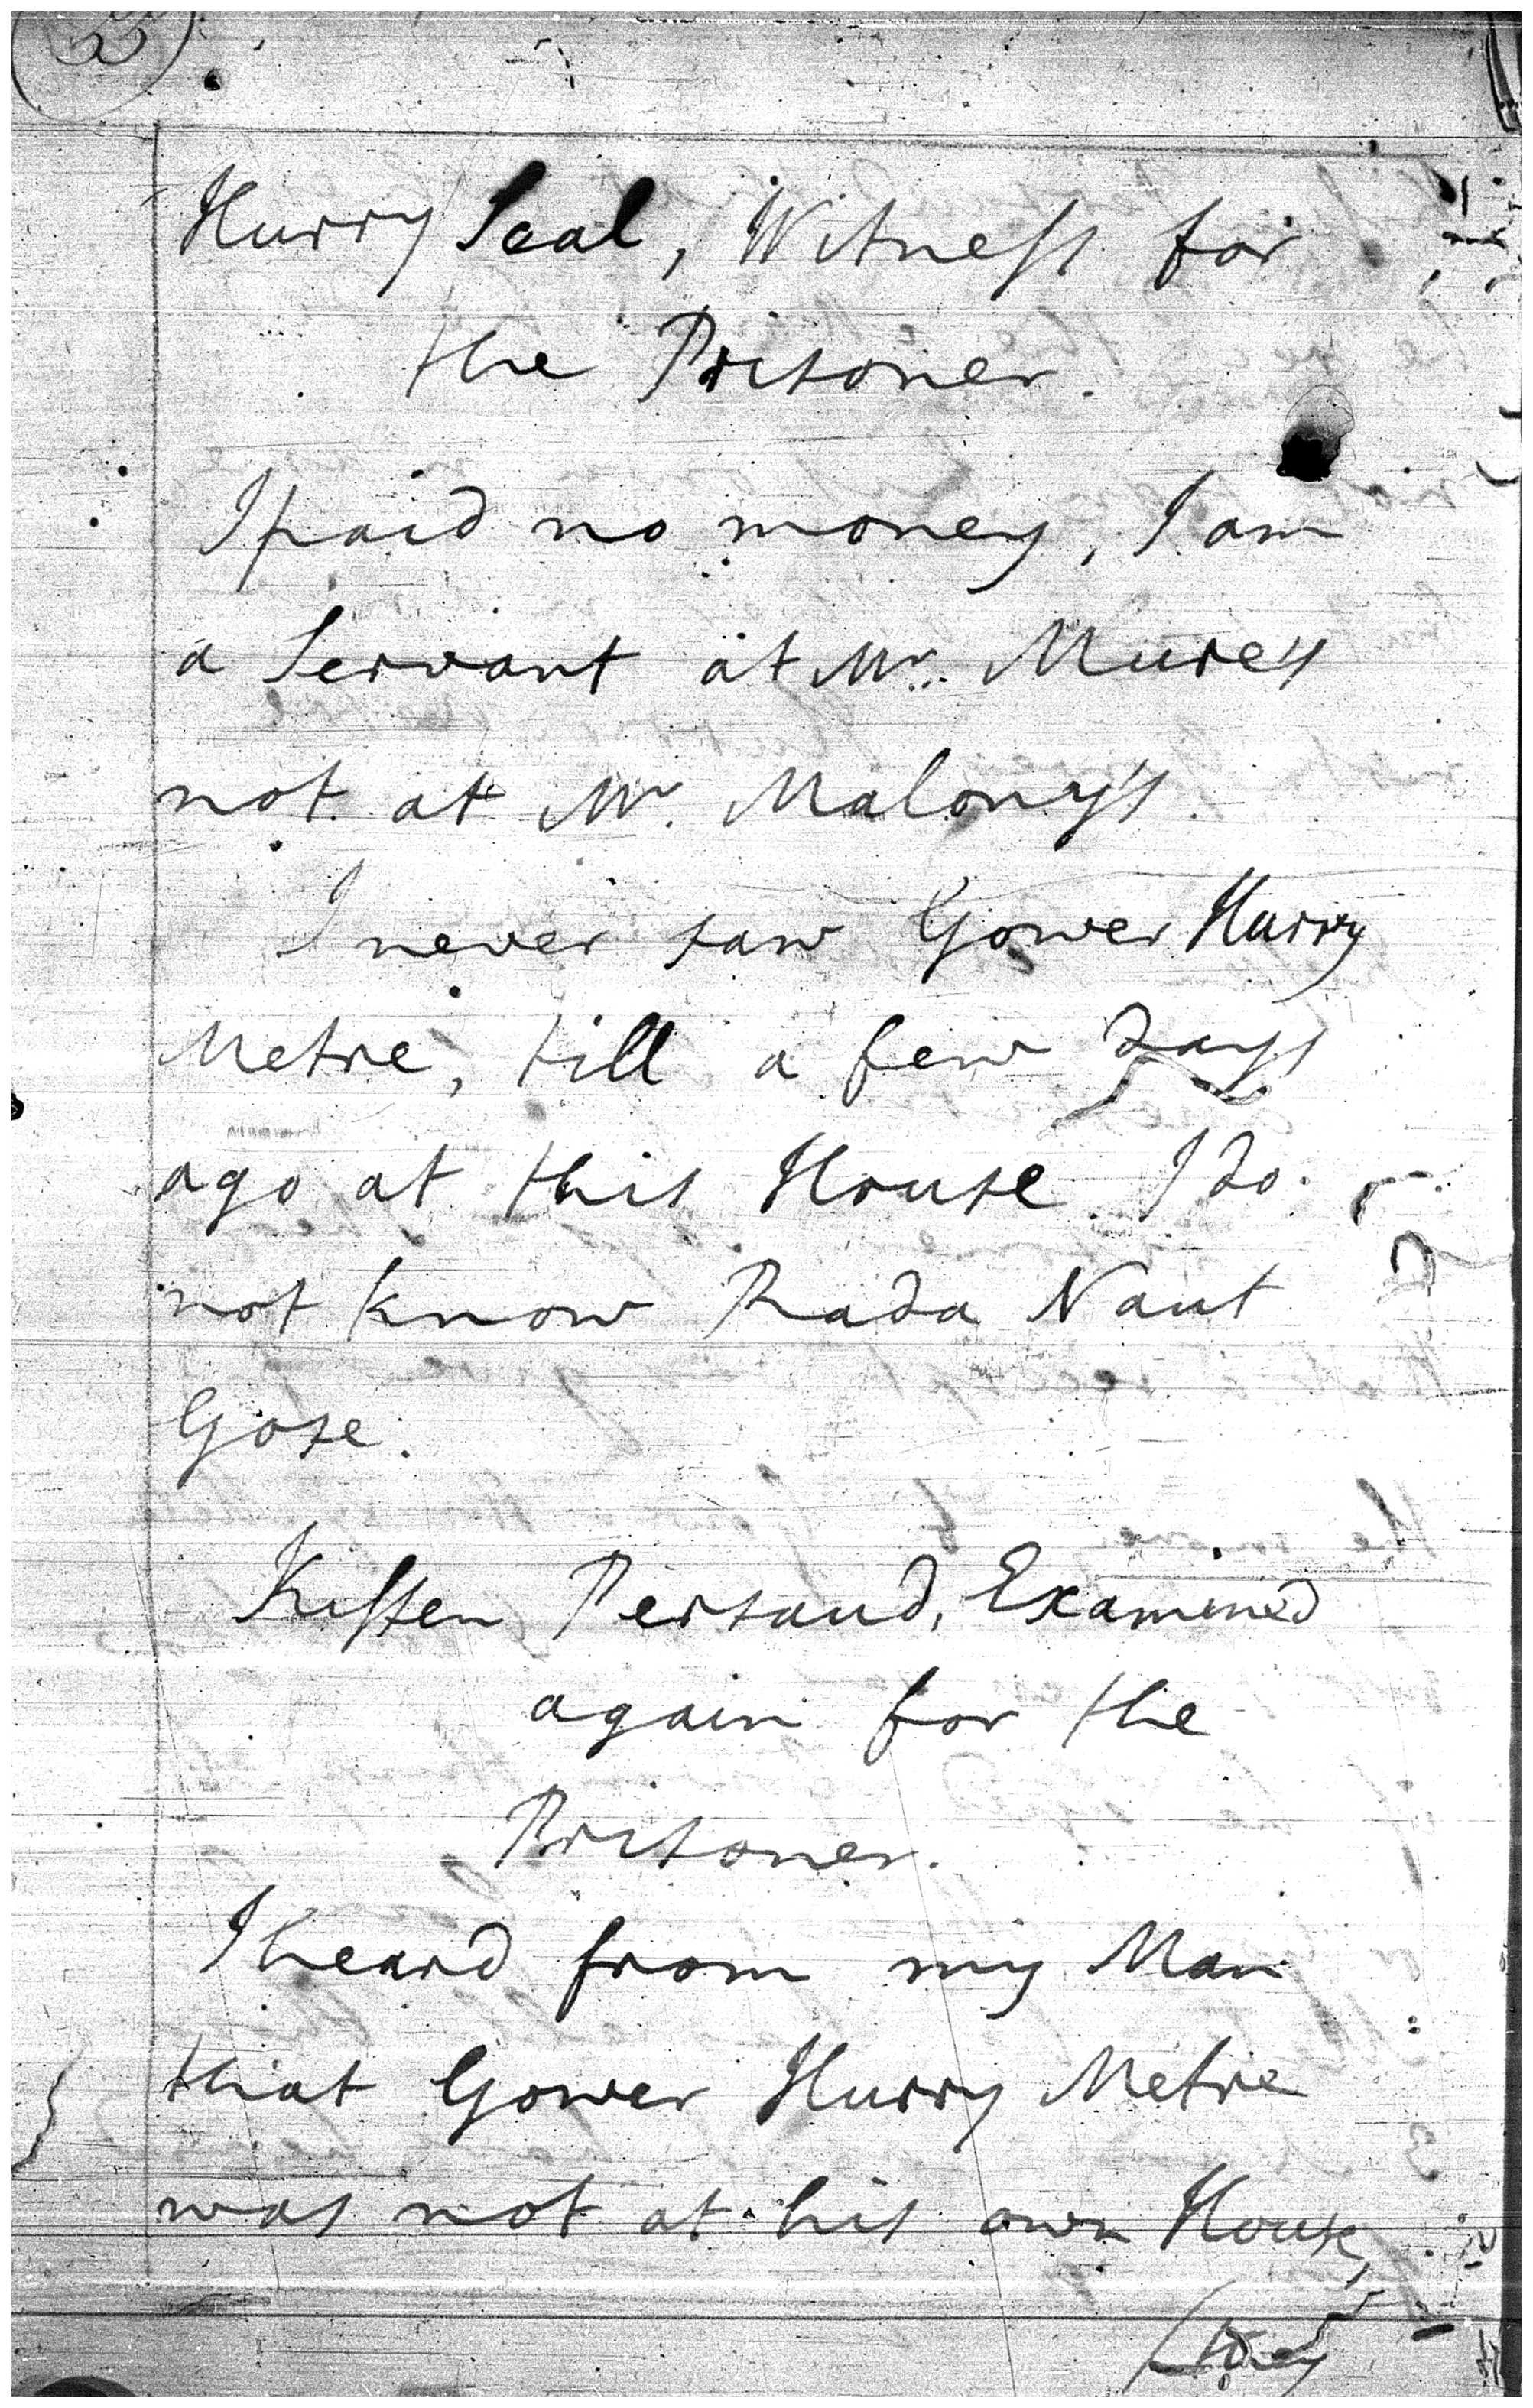 Hurry Seal, Witness for
the Prisoner.
I paid no money, I am
a Servant at Mr. Mure's
not at Mr. Malony's.
I never saw Gower Hurry
Metre, till a few Days
ago at this House. I do
not know Rada Naut
Gose.
Kissen Persaud, Examined
again for the
Prisoner.
I heard from my Man
that Gower Hurry Metre
was not at his own House,